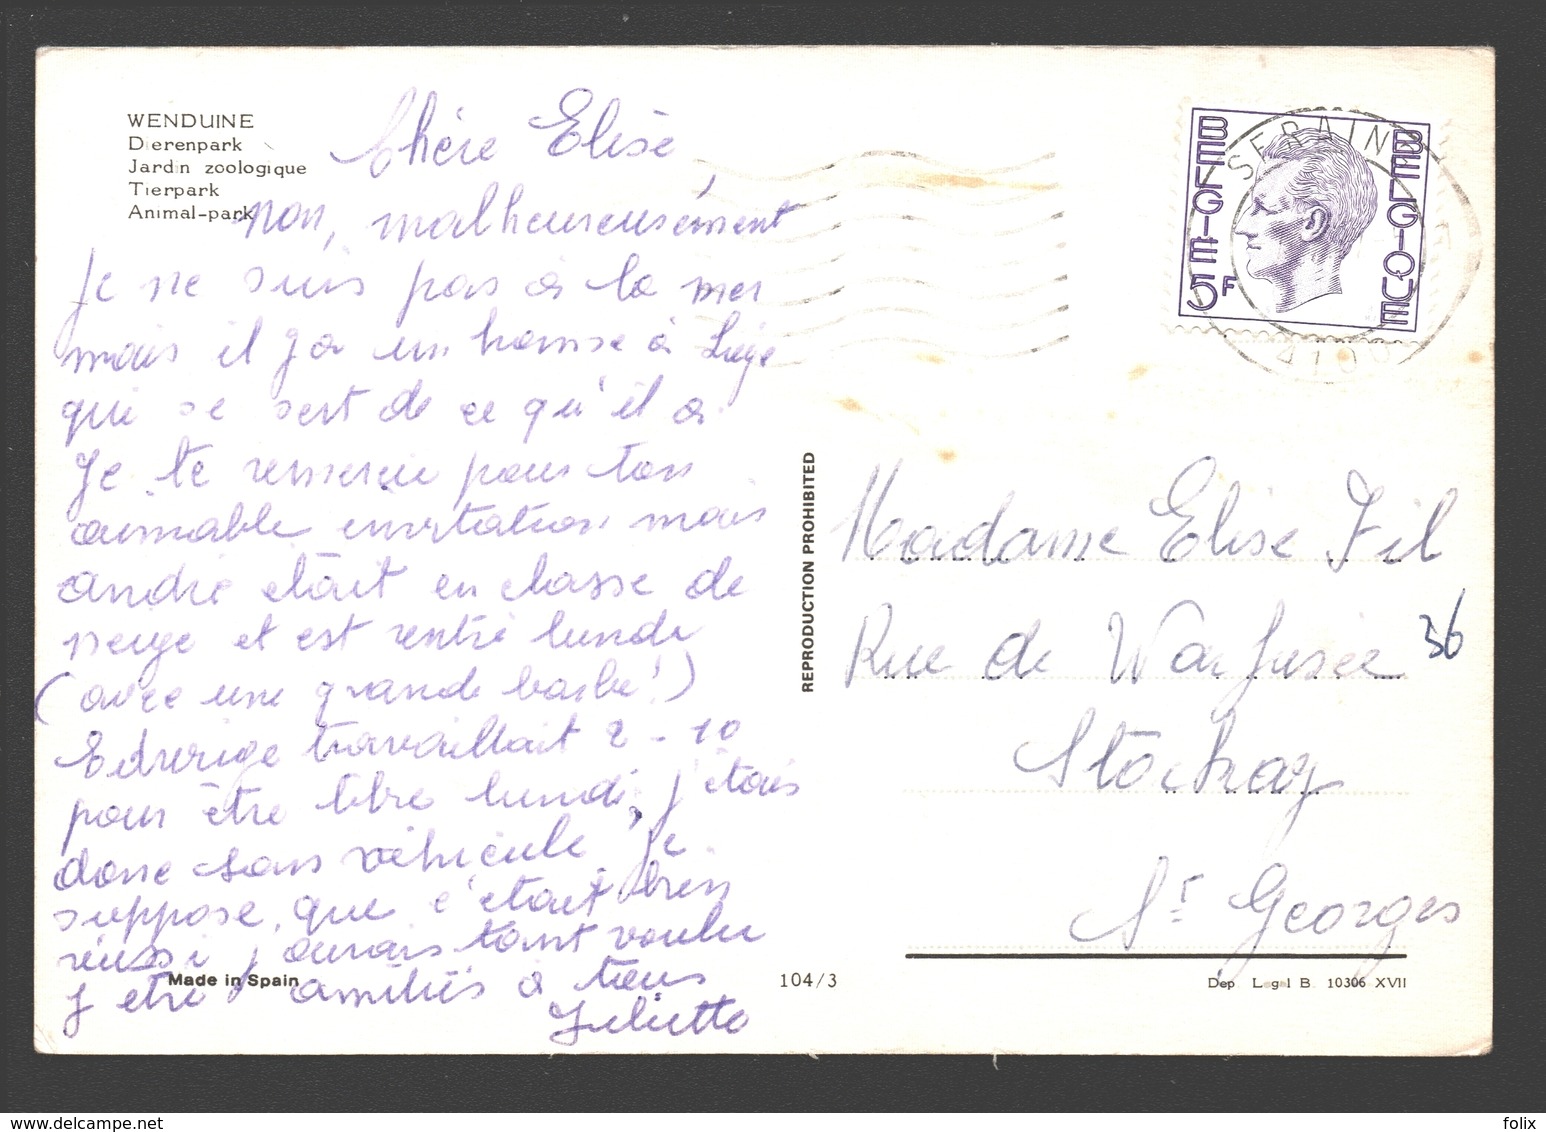 WENDUINE
Dierenpark
Jardin zoologique
Tierpark
Animal-park
Chère Elise
non, malheureusement
je ne suis pas à la mer
mais il y a un homme à Liège
qui se sert de ce qu'il a
Je te remercie pour ton
aimable invitation mais
andré était en classe de
neige et est rentré lundi
(avec une grande barbe!)
Edwige travaillait 2-10
pour être libre lundi, j'étais
donc sans véhicule je
suppose que c'était bien
réussi j'aurais tant voulu
y être amitiés à tous
Juliette
Made in Spain
104/3
REPRODUCTION PROHIBITED
BELGIE
BELGIQUE
5F
SERAING
4100
Madame Elise Fil
Rue de Warfusée 36
Stockay
St Georges
Dep Legal B. 10306 XVII
delcampe.net
folix